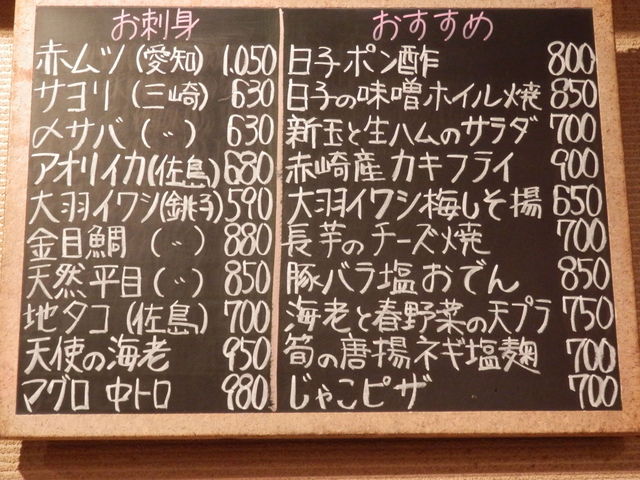 お刺身
赤ムツ(愛知) 1,050
サヨリ(三崎) 630
〆サバ(〃) 630
アオリイカ(佐島) 680
大羽イワシ(銚子) 590
金目鯛(〃) 880
天然平目(〃) 850
地タコ(佐島) 700
天使の海老 950
マグロ中トロ 980
おすすめ
日子ポン酢 800
日子の味噌ホイル焼 850
新玉と生ハムのサラダ 700
赤崎産カキフライ 900
大羽イワシ梅しそ揚 650
長芋のチーズ焼 700
豚バラ塩おでん 850
海老と春野菜の天プラ 750
筍の唐揚ネギ塩麹 700
じゃこピザ 700